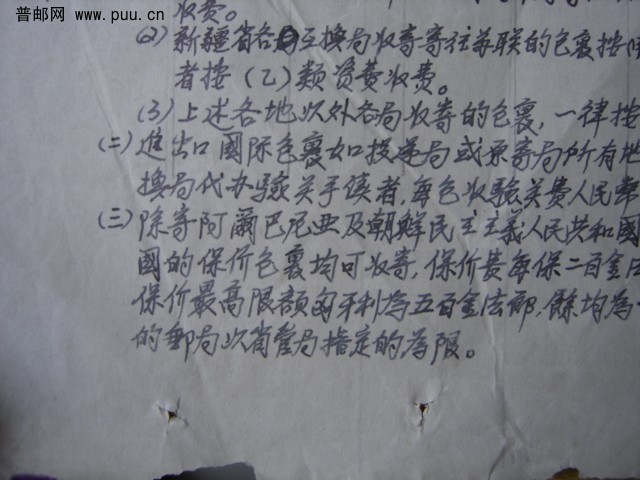 普邮网 www.puu.cn
收费。
(2) 新疆省各互换局收寄寄往苏联的包裹按
者按(乙)类资费收费。
(3) 上述各地以外各局收寄的包裹,一律按
(二) 進出口國际包裹如投递局或原寄局所有地
換局代办驗关手续者,每包收驗关费人民幣
(三) 除寄阿爾巴尼亚及朝鮮民主主義人民共和國
國的保价包裹均可收寄,保价费每保二百金法
保价最高限額匈牙利為五百金法郎,餘均為
的郵局以省管局指定的為限。